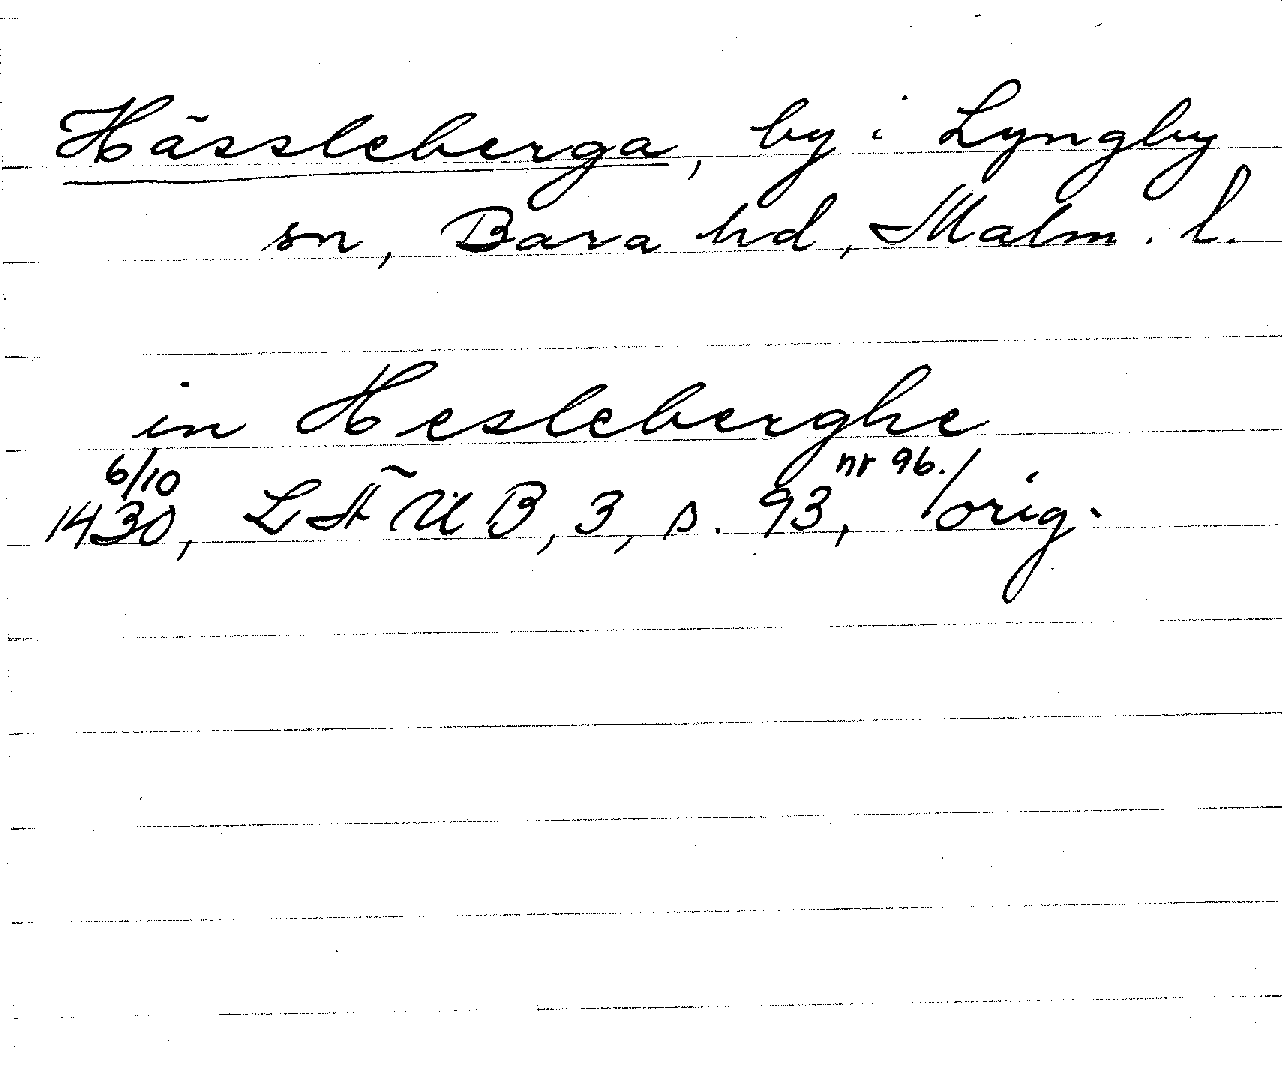 Hässleberga, by i Lyngby
sn, Bara hd, Malm. l.
in Hesleberghe
6/10 nr 96.
1430, LÄUB, 3, s. 93, / orig.